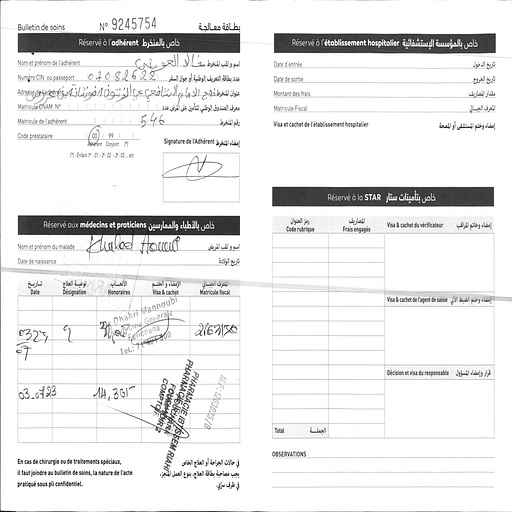 Bulletin de soins N° 9245754 بطاقة معالجة
Réservé à l'adhérent خاص بالمنخرط
Nom et prénom de l'adhérent خالد العويني اسم و لقب المنخرط
Numéro CIN ou passeport 07082622 عدد بطاقة التعريف الوطنية أو جواز السفر
عنوان المنخرط
Matricule CNAM N°
Matricule de l'adhérent 546 رقم المنخرط
Code prestataire 00 99 Signature de l'Adhérent إمضاء المنخرط
Adhérent Conjoint (*)
(*) : Enfant 1er : 01 - 2e : 02 - 3e : 03 ... etc
Réservé aux médecins et praticiens خاص بالأطباء والممارسين
Nom et prénom du malade Khaled اسم و لقب المريض
Date de naissance تاريخ الولادة
تاريخ Date
نوعية العلاج Désignation
الأتعاب Honoraires
الإمضاء و الختم Visa & cachet
المعرف الجبائي Matricule fiscal
Dhahri Mannoubi
03.07.23 14,365
PHARMACIE
En cas de chirurgie ou de traitements spéciaux,
il faut joindre au bulletin de soins, la nature de l'acte
pratiqué sous pli confidentiel.
في حالات الجراحة أو العلاج الخاص
يجب مصاحبة بطاقة العلاج، بنوع العمل المنجز،
في ظرف سري.
Réservé à l'établissement hospitalier خاص بالمؤسسة الإستشفائية
Date d'entrée تاريخ الدخول
Date de sortie تاريخ الخروج
Montant des frais مقدار المصاريف
Matricule Fiscal المعرف الجبائي
Visa et cachet de l'établissement hospitalier إمضاء وختم المستشفى أو المصحة
Réservé à la STAR خاص بتأمينات ستار
رمز العنوان Code rubrique
المصاريف Frais engagés
Visa & cachet du vérificateur إمضاء وختم المراقب
Visa & cachet de l'agent de saisie
Décision et visa du responsable قرار وإمضاء المسؤول
Total الجملة
OBSERVATIONS